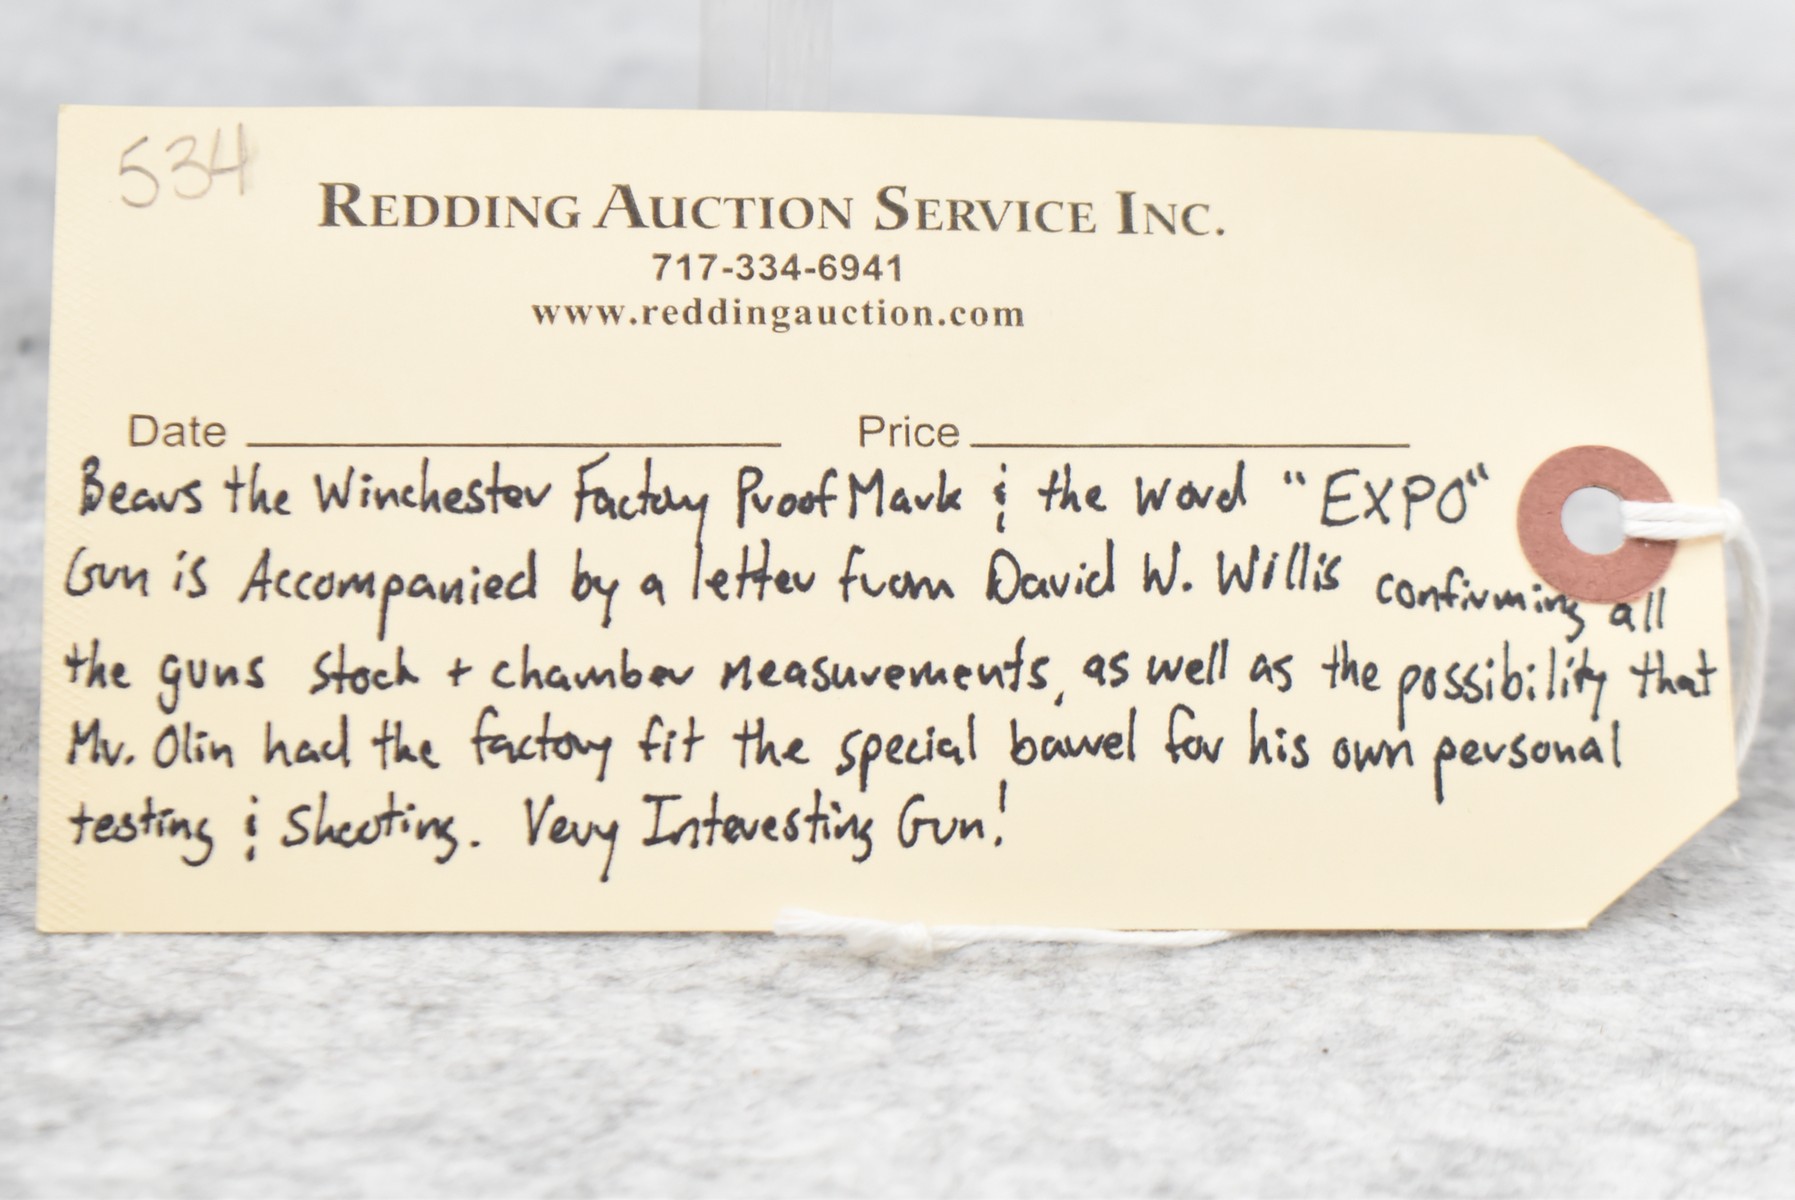 534
REDDING AUCTION SERVICE INC.
717-334-6941
www.reddingauction.com
Date Price
Bears the Winchester Factory Proof Mark & the word "EXPO"
Gun is Accompanied by a letter from David W. Willis confirming all
the guns stock + chamber measurements, as well as the possibility that
Mr. Olin had the factory fit the special barrel for his own personal
testing & Shooting. Very Interesting Gun!